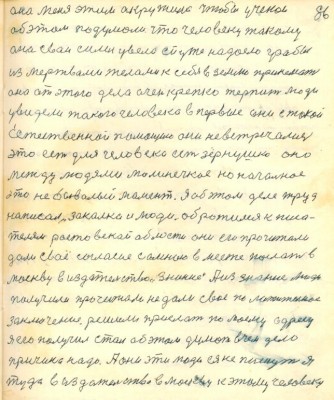 86
она меня этим окружила чтобы ученом
об этом подумали что человеку такому
она свои силы увела ей уже надоело гробы
из мертвыми телами к себе в землю принимать
она от этого дела очен крепко терпит люди
увидели такого человека в первые они с такой
Естественной помощию они невстречались
это ест для человека ест зернушко оно
между людями маличкое но началное
это не бывалый мамент. Я об этом деле труд
написал, закалка и люди. обротился к писа-
телям ростовской области они его прочитали
дали своё согласие самною в месте послать в
москву в издателство, Знание" А из знание люди
получили прочитали и дали свое положителное
заключение. решили прислат по моему адресу
я его получил стал об этом думат в чем дело
причина надо. А они эти люди ея не пишут Я
туда в издателство в москву к этому человеку